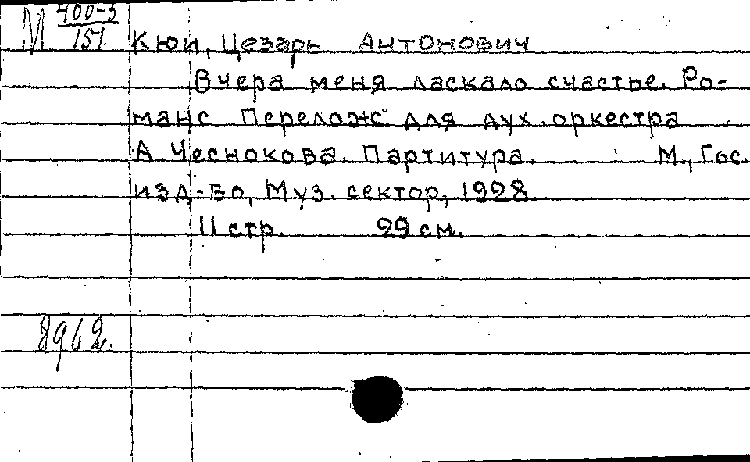 М 400-5
151
Кюи, Цезарь Антонович
Вчера меня ласкало счастье. Ро-
манс Перелож для дух. оркестра
А Чеснокова. Партитура. М., Гос.
изд-во, Муз. сектор, 1928
11 стр. 29 см.
8962.